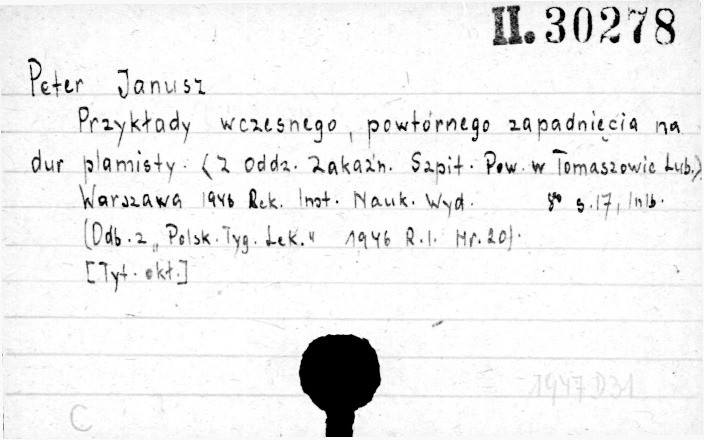 II. 30278
Peter Janusz
Przykłady wczesnego, powtórnego zapadnięcia na
dur plamisty. (Z oddz. Zakaźn. Szpit. Pow. w Tomaszowie Lub.)
Warszawa 1946 Lek. Inst. Nauk. Wyd. 8° s. 17, 1 nlb.
(Odb. z „Polsk. Tyg. Lek." 1946 R.I. Nr. 20).
[Tyt. okł.]
1947 D31
C